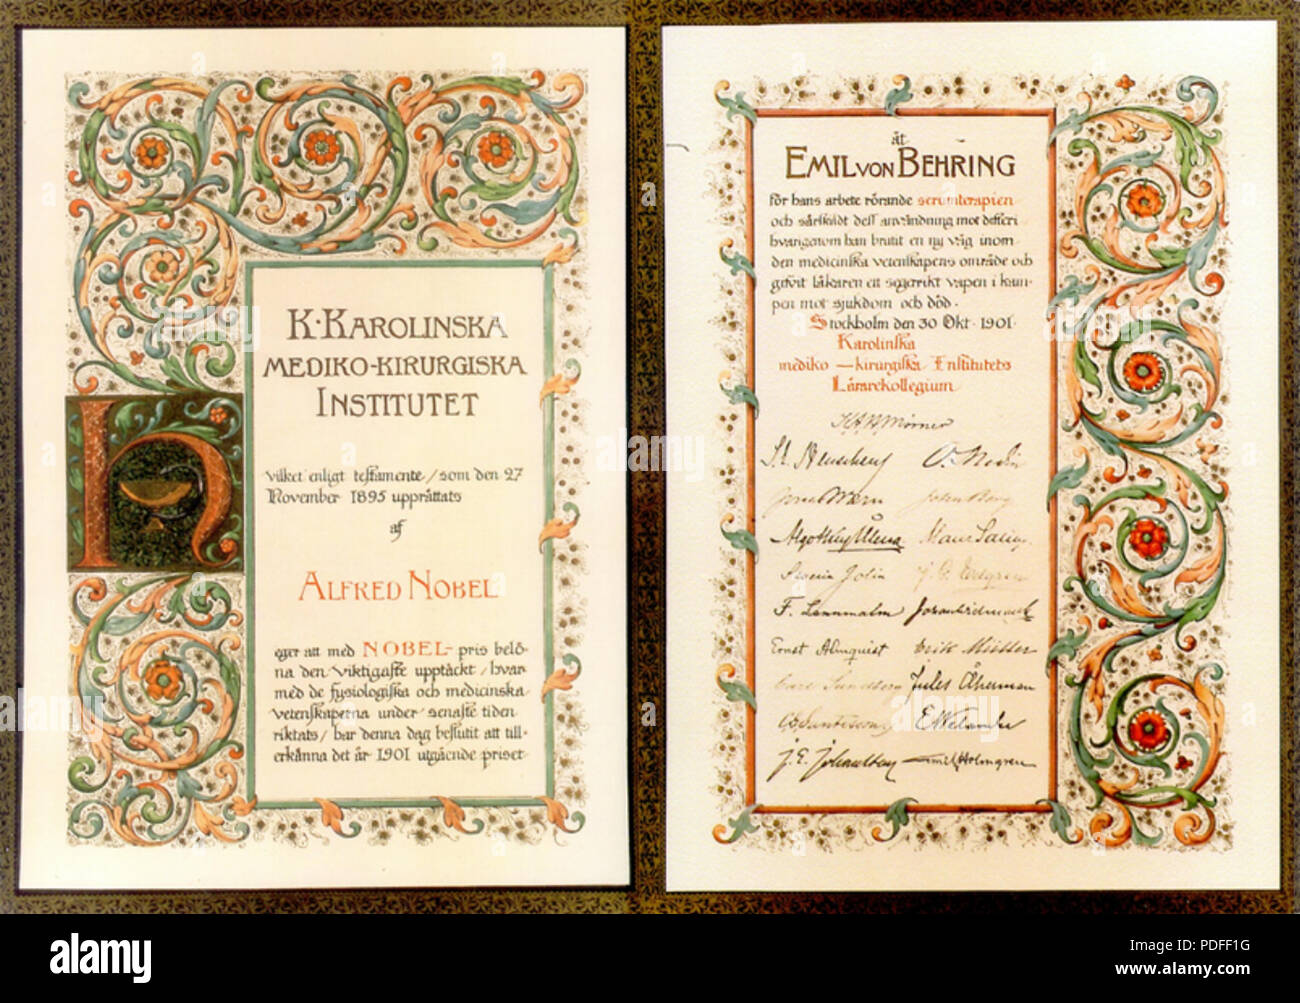 K·KAROLINSKA
MEDIKO-KIRURGISKA
INSTITUTET
vilket enligt testamente / som den 27
November 1895 upprättats
af
ALFRED NOBEL
eger att med NOBEL- pris belö-
na den viktigaste upptäckt / hvar-
med de fysiologiska och medicinska
vetenskaperna under senaste tiden
riktats / har denna dag beslutit att till-
erkänna det år 1901 utgående priset
åt
EMIL VON BEHRING
för hans arbete rörande serumterapien
och särskildt dess användning mot difteri
hvarigenom han brutit en ny väg inom
den medicinska vetenskapens område och
gifvit läkaren ett segerrikt vapen i kam-
pen mot sjukdom och död.
Stockholm den 30 Okt. 1901.
Karolinska
mediko—kirurgiska Institutets
Lärarekollegium
K A H Mörner
John Berg
F. Lennmalm
Ernst Almquist Erik Müller
Carl Sundberg Jules Åkerman
J. E. Johansson Emil Holmgren
alamy
Image ID: PDFF1G
www.alamy.com